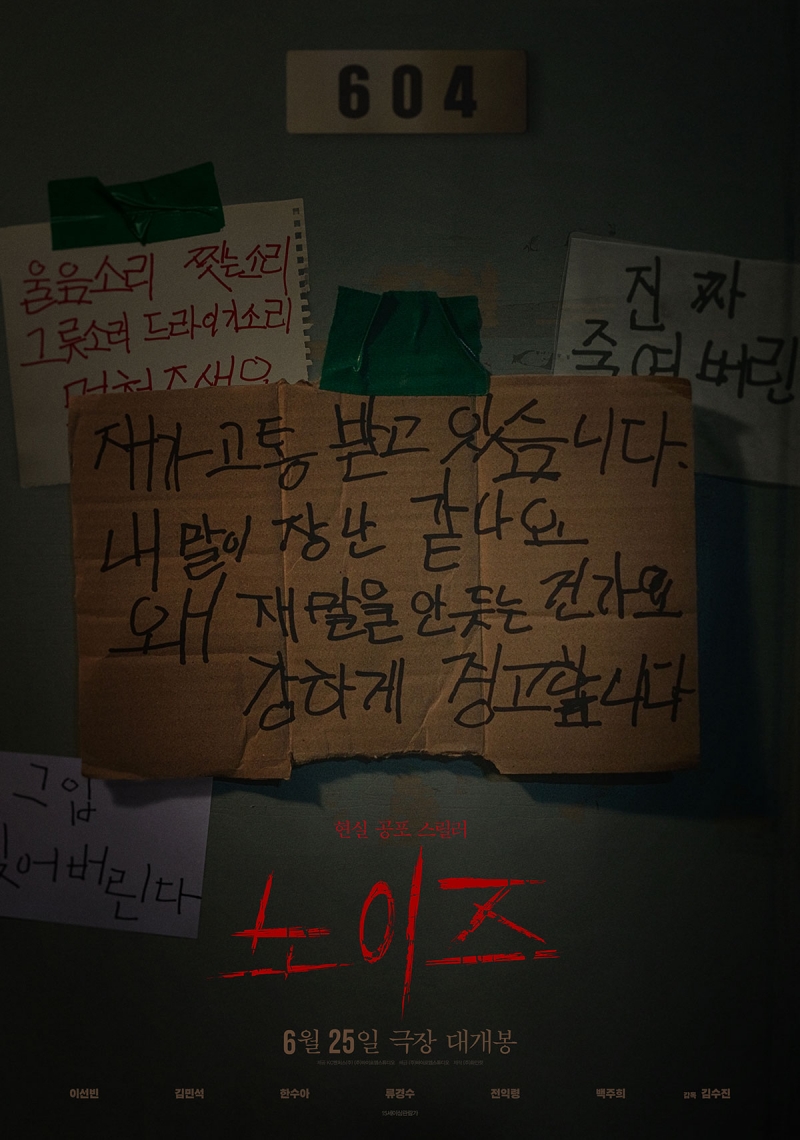 604
울음소리 찢는소리
그릇소리 드라이기소리
멈춰주세요
진짜
죽여버린
재가 고통 받고 있습니다.
내 말이 장난 같나요
왜 재 말을 안듯는 건가요
강하게 경고핪니다
그 입
찢어버린다
현실 공포 스릴러
노이즈
6월 25일 극장 대개봉
이선빈 김민석 한수아 류경수 전익령 백주희 감독 김수진
15세이상관람가